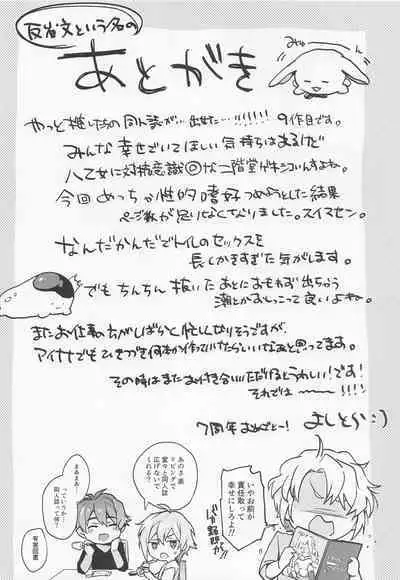 反省文という名の
あとがき
みゅーん
やっと推したちの同人誌が…出せた…!!!!!! 9作目です。
みんな幸せでいてほしい気持ちはあるけど
八乙女に対抗意識◎な二階堂がキンコいんすよね。
今回めっちゃ性的嗜好つめようとした結果
ページ数が足りなくなりました。スイマセン。
なんだかんだでトイレのセックスを
長くかきすぎた気がします。
でもちんちん抜いたあとにおもわず出ちゃう
潮とかおしっこって良いよね。
またお仕事がしばらく忙しくなりそうですが、
アイナナでもひきつづき何か作っていけたらいいなあと思ってます。
その時はまたお付き合いいただけるとうれしい!です!
それでは〜!!!!
7周年おめでと〜! よしとら:)
いやお前が
責任取って
幸せにしろよ!!
あのさ楽
リビングで
堂々と同人誌
広げないで
くれる?
まあまあ…
っていうか
同人誌って何?
有害図書